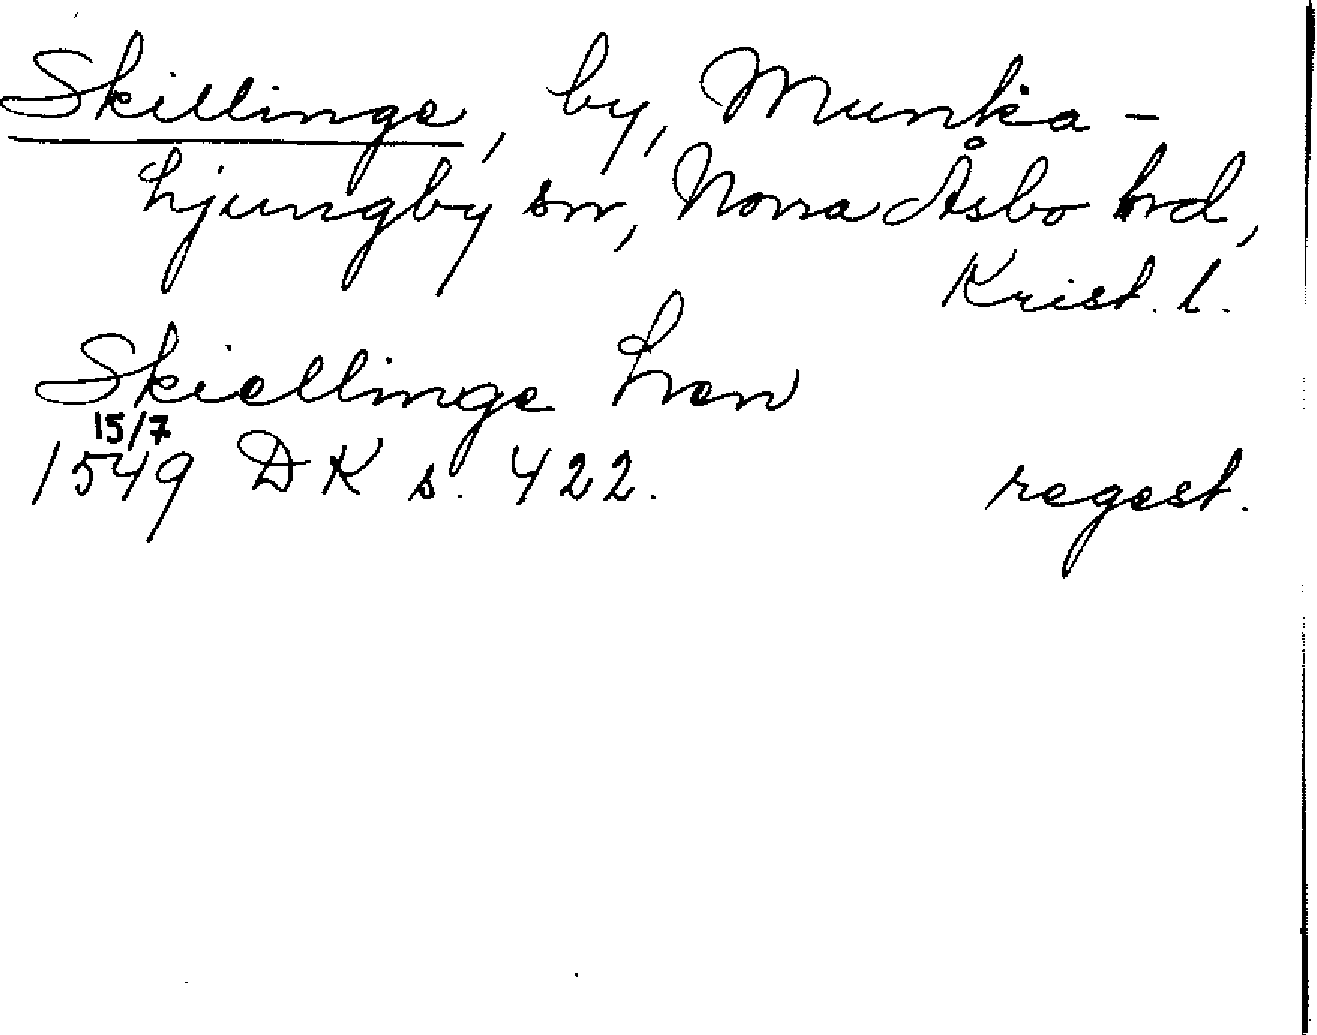 Skillinge, by, Munka-
Ljungby sn, Norra Åsbo hrd,
Krist. l.
Skiellinge Lren
15/7
1549 DK s. 422. regest.